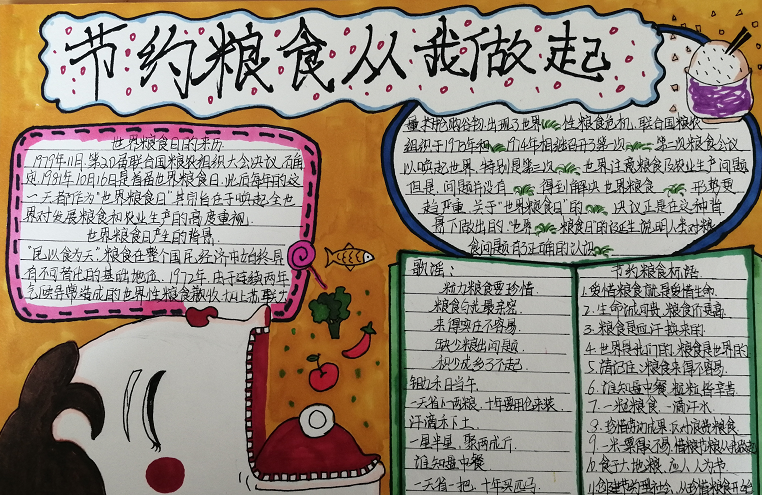 节约粮食从我做起
世界粮食日的来历
1979年11月,第20届联合国粮农组织大会决议,确
定,1981年10月16日是首届世界粮食日,此后每年的这
一天都作为"世界粮食日"其宗旨在于唤起全世
界对发展粮食和农业生产的高度重视.
世界粮食日产生的背景
"民以食为天",粮食在整个国民经济中始终具
有不可替代的基础地位。1972年,由于连续两年
气候异常造成的世界性粮食歉收,加上苏联大
量抢购谷物,出现了世界性粮食危机,联合国粮农
组织于1973年和1974年相继召开第一次第二次粮食会议
以唤起世界,特别是第三次世界注意粮食及农业生产问题
但是,问题并没有得到解决世界粮食形势更
趋严重,关于"世界粮食日"的决议正是在这种背
景下做出的."世界粮食日"的诞生,说明人类对粮
食问题有了正确的认识
歌谣:
粒力粮食要珍惜.
粮食与谁最亲密.
来得实在不容易.
缺少粮出问题.
积少成多了不起.
锄禾日当午.
一天省一两粮,十年要用仓来装.
汗滴禾下土
一里半里,聚两成斤.
谁知盘中餐
一天省一把,十年买匹马.
节约粮食标语
1.爱惜粮食就是爱惜生命.
2.生命诚可贵,粮食价更高.
3.粮食是血汗换来的.
4.世界是我们的,粮食是世界的
5.请记住:粮食来得不容易.
6.谁知盘中餐,粒粒皆辛苦
7.一粒粮食,一滴汗水.
8.珍惜劳动成果,反对浪费粮食
9.一米一粟得不易,惜粮节粮从我做起
10.食于大地粮,应人人为节